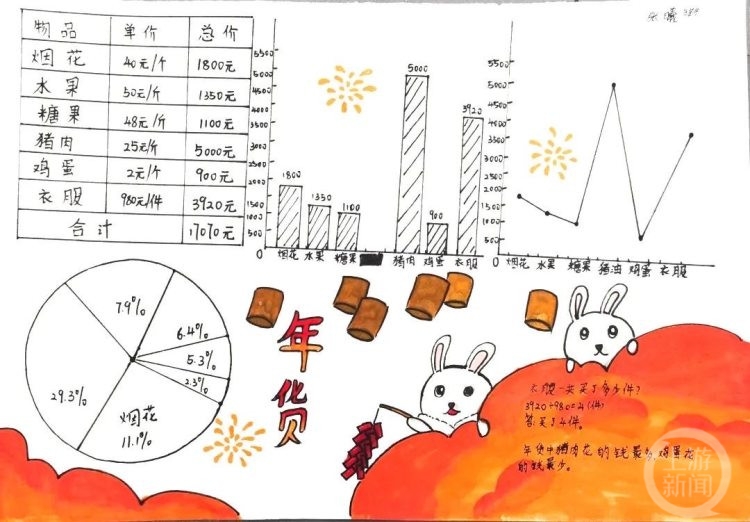 物品 单价 总价
烟花 40元/个 1800元
水果 50元/斤 1350元
糖果 48元/斤 1100元
猪肉 25元/斤 5000元
鸡蛋 2元/个 900元
衣服 980元/件 3920元
合计 17070元
5500
5000
4500
4000
3500
3000
2500
2000
1500
1000
500
1800 1350 1100 5000 900 3920
烟花 水果 糖果 猪肉 鸡蛋 衣服
5500
5000
4500
4000
3500
3000
2500
2000
1500
1000
500
烟花 水果 糖果 猪油 鸡蛋 衣服
7.9%
6.4%
5.3%
2.3%
29.3%
烟花
11.1%
年货
衣服一共买了多少件?
3920÷980=4(件)
答:买了4件。
年货中猪肉花的钱最多,鸡蛋花
的钱最少。
上游
新闻